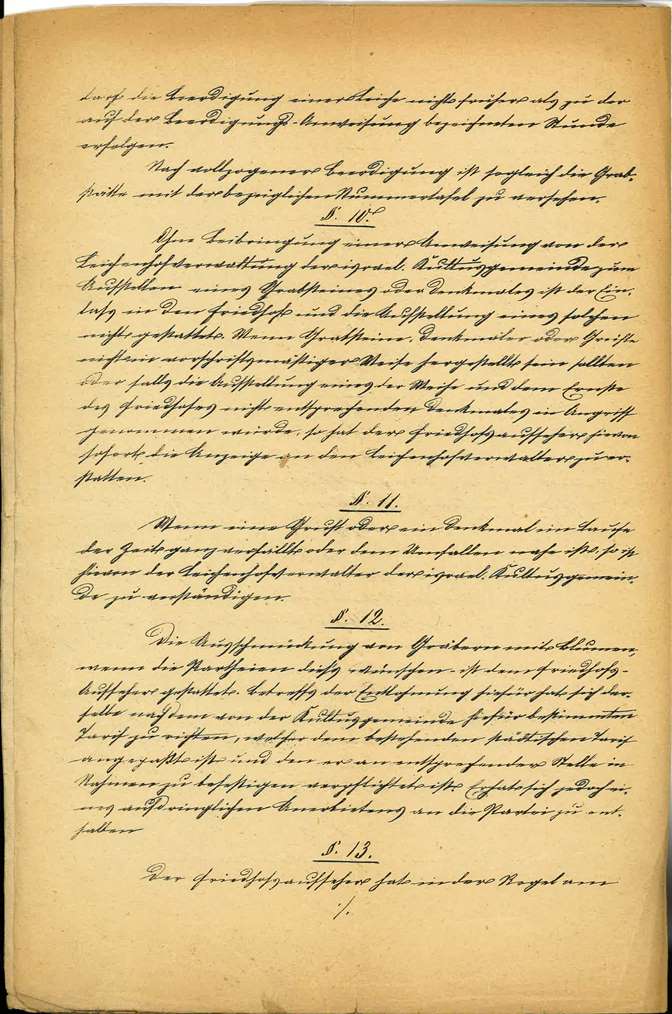 darf die Beerdigung einer Leiche nicht früher als zu der
auf der Beerdigungs-Anweisung bezeichneten Stunde
erfolgen.
Nach vollzogener Beerdigung ist sogleich die Grab-
stätte mit der bezüglichen Nummertafel zu versehen.
§. 10.
Ohne Beibringung einer Anweisung von der
Leichenhofverwaltung der israel. Kultusgemeinde zum
Aufstellen eines Grabsteines oder Denkmales ist der Ein-
laß in den Friedhof und die Aufstellung eines solchen
nicht gestattet. Wenn Grabsteine, Denkmäler oder Grüfte
nicht in vorschriftsmäßiger Weise hergestellt sein sollten
oder falls die Aufstellung eines der Weihe und dem Ernste
des Friedhofes nicht entsprechenden Denkmales in Angriff
genommen würde, so hat der Friedhofsaufseher hievon
sofort die Anzeige an den Leichenhofverwalter zu er-
statten.
§. 11.
Wenn eine Gruft oder ein Denkmal im Laufe
der Zeit ganz verfällt oder dem Umfallen nahe ist, so ist
hievon der Leichenhofverwalter der israel. Kultusgemein-
de zu verständigen.
§. 12.
Die Ausschmückung von Gräbern mit Blumen,
wenn die Partheien dieß wünschen ist dem Friedhofs-
Aufseher gestattet. Betreffs der Entlohnung hiefür hat sich der-
selbe nach dem von der Kultusgemeinde hiefür bestimmten
Tarif zu richten, welcher dem bestehenden städtischen Tarif
angepaßt ist und den er an entsprechender Stelle in
Rahmen zu befestigen verpflichtet ist. Er hat sich jedoch ei-
nes aufdringlichen Anerbietens an die Partei zu ent-
halten
§. 13.
Der Friedhofsaufseher hat in der Regel am
./.